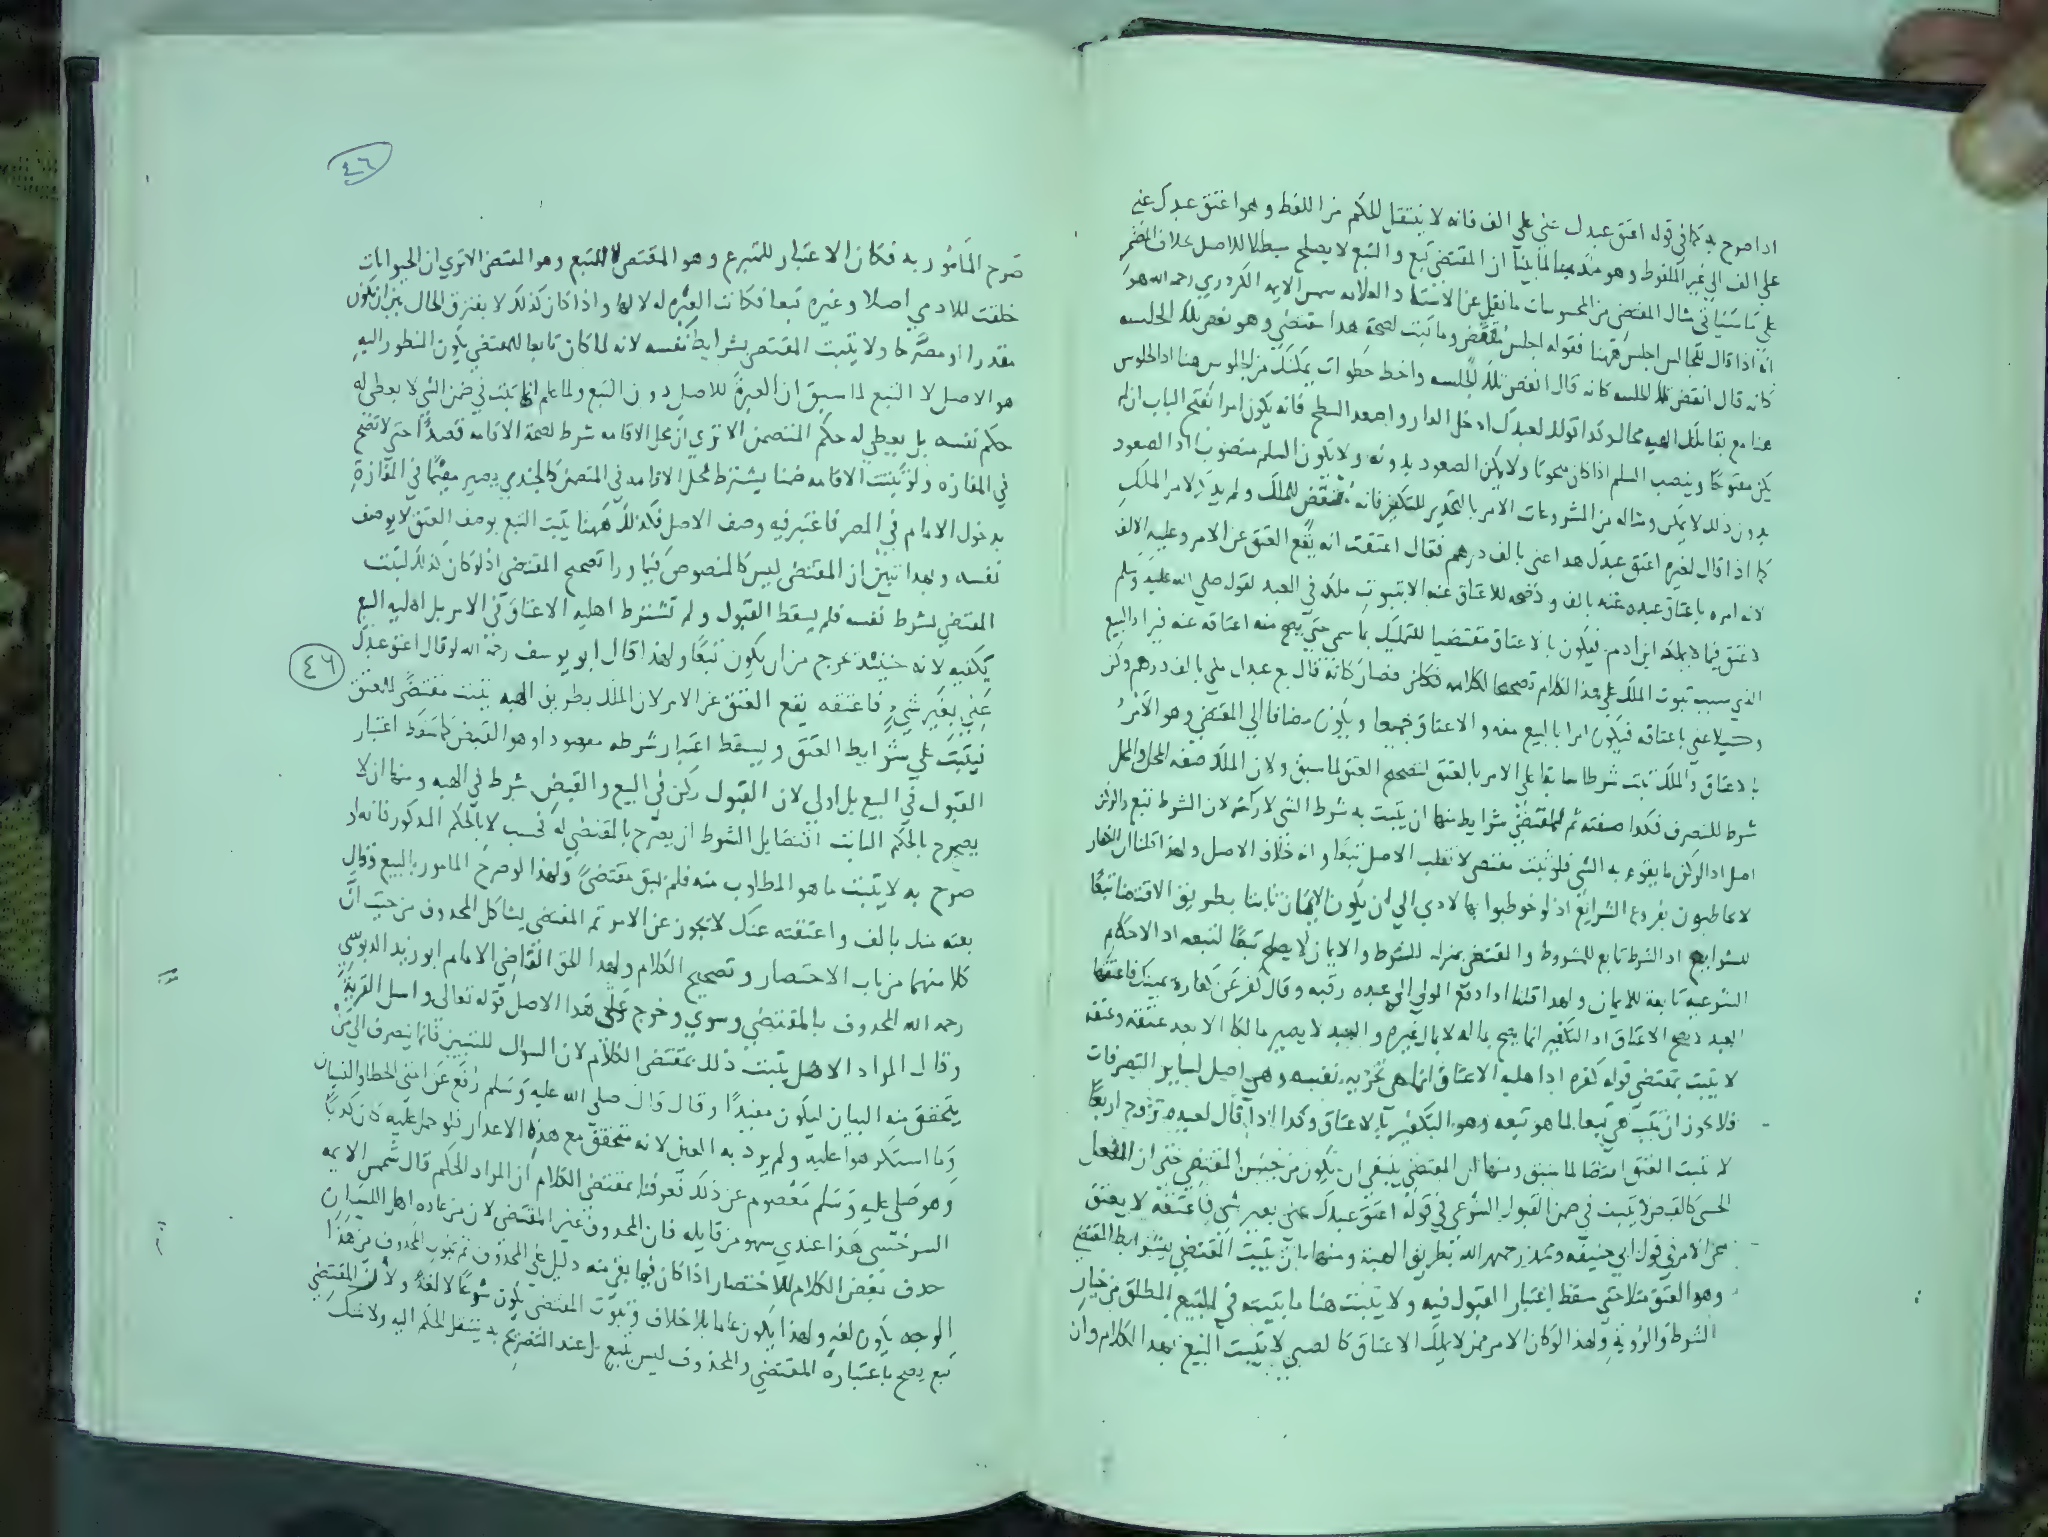 اذا صرح به كما في قوله اعتق عبدك عني على الف فانه لا ينتقل الحكم من اللفظ وهو اعتق عبدك عني
على الف الى غير الملفوظ وهو لما بينا ان المقتضى تبع والتبع لا يصلح مبطلا للاصل بخلاف المضمر
على ما سيأتي مثال المقتضى من المحسوسات ما نقل عن الاستاد العلامه شمس الايمه الكردري رحمه الله هو
انه اذا قال للجالس اجلس ههنا فقوله اجلس مقتض وما ثبت لصحة هذا مقتضى وهو نقض تلك الجلسه
كانه قال انقض تلك الجلسه كانه قال انقض تلك الجلسه واخط خطوات يمكنك من الجلوس هنا اذ الجلوس
هنا مع بقا تلك الهيه محال وكذا قولك لعبدك ادخل الدار واصعد السطح فانه يكون امرا بفتح الباب ان لم
يكن مفتوحا وينصب السلم اذا كان ولا يمكن الصعود بدونه ولا يكون السلم منصوبا اذ الصعود
بدون ذلك لا يمكن ومثاله من المشروعات الامر بالتحرير للتكفير فانه مقتض للملك ولم يذكر
كما اذا قال لغيره اعتق عبدك هذا عني بالف درهم فقال اعتقت انه يقع العتق عن الامر وعليه الالف
لانه امره باعتاق عبده عنه بالف ولا صحه للاعتاق عنه الا بثبوت ملكه في العبد لقوله صلى الله عليه وسلم
لا عتق فيما لا يملكه ابن ادم فيكون بالاعتاق مقتضيا للتمليك بما سمى حتى يصح منه اعتاقه عنه فيراد البيع
الذي سبب ثبوت الملك على هذا الكلام تصحيحا لكلامه فصار كانه قال بع عبدك مني بالف درهم وكن
وكيلا عني باعتاقه فيكون امرا بالبيع منه والاعتاق جميعا ويكون مضافا الى المقتضي وهو الامر
بالاعتاق والملك ثابت شرطا سابقا على الامر بالعتق لتصحيح العتق لما سبق ولان الملك صفه المحل والمحل
شرط للتصرف فكذا صفته ثم للمقتضى شرايط منها ان يثبت به شرط الشي لا ركنه لان الشرط تبع والركن
اصل اذ الركن ما يقوم به الشي فلو ثبت مقتضى لانقلب الاصل تبعا وانه خلاف الاصل ولهذا قلنا ان الكفار
لا يخاطبون بفروع الشرايع اذ لو خوطبوا بها لادى الى ان يكون الايمان ثابتا بطريق الاقتضا تبعا
للشرايع اذ الشرط تابع للمشروط والمقتضى بمنزله الشرط والايمان لا يصلح تبعا لتبعه اذ الاحكام
الشرعيه تابعه للايمان ولهذا قلنا اذا دفع المولى الى عبده رقبه وقال كفر عن كفارة يمينك فاعتقها
العبد لا يصح الاعتاق اذ التكفير انما يصح بماله لا بمال غيره والعبد لا يصير مالكا الا بعد عتقه وعتقه
لا يثبت بمقتضى قوله كفر اذ اهليه الاعتاق انما هي بحريه نفسه وهي اصل لساير التصرفات
فلا يجوز ان يثبت هي تبعا لما هو تبعه وهو التكفير بالاعتاق وكذا اذا قال لعبده تزوج اربعا
لا يثبت العتق اقتضا لما سبق ومنها ان المقتضى ينبغي ان يكون من جنس المقتضي حتى ان الفعل
الحسي كالقبض لا يثبت في ضمن القبول الشرعي في قوله اعتق عبدك عني بغير شي فاعتقه لا يعتق
عن الامر في قول ابي حنيفه ومحمد رحمهم الله بطريق الهبة ومنها ان يثبت المقتضى بشرايط المقتضي
وهو العتق مثلا حتى سقط اعتبار القبول فيه ولا يثبت هنا ما يثبت في البيع المطلق من خيار
الشرط والرويه ولهذا لو كان الامر ممن لا يملك الاعتاق كالصبي لا يثبت البيع بهذا الكلام وان
٤٦
صرح المامور به فكان الاعتبار للمتبوع وهو المقتضي لا للتبع وهو المقتضى الا ترى ان الحيوانات
خلقت للادمي اصلا وغيره تبعا فكانت العبره له لا لها واذا كان كذلك لا يفترق الحال بين ان يكون
مقدرا او مصرحا ولا يثبت المقتضى بشرايط نفسه لانه لما كان تابعا للمقتضي يكون المنظور اليه
هو الاصل لا التبع لما سبق ان العبرة للاصل دون التبع ولما علم ان ما يثبت في ضمن الشي لا يعطى له
حكم نفسه بل يعطى له حكم المتضمن الا ترى ان محل الاقامه شرط لصحة الاقامه قصدا حتى لا تصح
في المفازه ولو ثبتت الاقامه ضمنا يشترط محل الاقامه في المتضمن كالجندي يصير مقيما في المفازة
بدخول الامام في المصر فاعتبر فيه وصف الاصل فكذلك ههنا يثبت التبع بوصف العتق لا بوصف
نفسه وبهذا تبين ان المقتضى ليس كالمنصوص فيما ورا تصحيح المقتضي اذ لو كان كذلك لثبت
المقتضى بشرط نفسه فلم يسقط القبول ولم تشترط اهليه الاعتاق في الامر بل اهليه البيع
تكفيه لانه حينئذ خرج من ان يكون تبعا ولهذا قال ابو يوسف رحمه الله لو قال اعتق عبدك
٤٦
عني بغير شيء فاعتقه يقع العتق عن الامر لان الملك بطريق الهبه يثبت مقتضى للعتق
فيثبت على شرايط العتق ويسقط اعتبار شرطه مقصودا وهو القبض كما سقط اعتبار
القبول في البيع بل اولى لان القبول ركن في البيع والقبض شرط في الهبه ومنها ان لا
يصرح بالحكم الثابت اقتضا بل الشرط ان يصرح بالمقتضي له فحسب لا بالحكم المذكور فانه اذ
صرح به لا يثبت ما هو المطلوب منه فلم يبق مقتضى ولهذا لو صرح المامور بالبيع وقال
بعته منك بالف واعتقته عنك لا يجوز عن الامر ثم المقتضى يشاكل المحذوف من حيث ان
كلا منهما من باب الاختصار وتصحيح الكلام ولهذا الحق القاضي الامام ابو زيد الدبوسي
رحمه الله المحذوف بالمقتضى وسوى وخرج على هذا الاصل قوله تعالى واسل القرية
وقال المراد الاهل يثبت ذلك بمقتضى الكلام لان السوال للتبيين فانما ينصرف الى من
يتحقق منه البيان ليكون مفيدا وقال قال صلى الله عليه وسلم رفع عن امتي الخطا والنسيان
وما استكرهوا عليه ولم يرد به العين لانه متحقق مع هذه الاعذار فلو حمل عليه كان كذبا
وهو صلى عليه وسلم معصوم عن ذلك فعرفنا بمقتضى الكلام ان المراد الحكم قال شمس الايمه
السرخسي هذا عندي سهو من قايله فان المحذوف غير المقتضى لان من عاده اهل اللسان
حذف بعض الكلام للاختصار اذا كان فيما بقي منه دليل على المحذوف ثم ثبوت المحذوف من هذا
الوجه يكون لغه ولهذا يكون عاما بلا خلاف وثبوت المقتضى يكون شرعا لا لغة ولان المقتضى
تبع يصح باعتباره المقتضي والمحذوف ليس بتبع بل عند التصريح به ينتقل الحكم اليه ولا شك